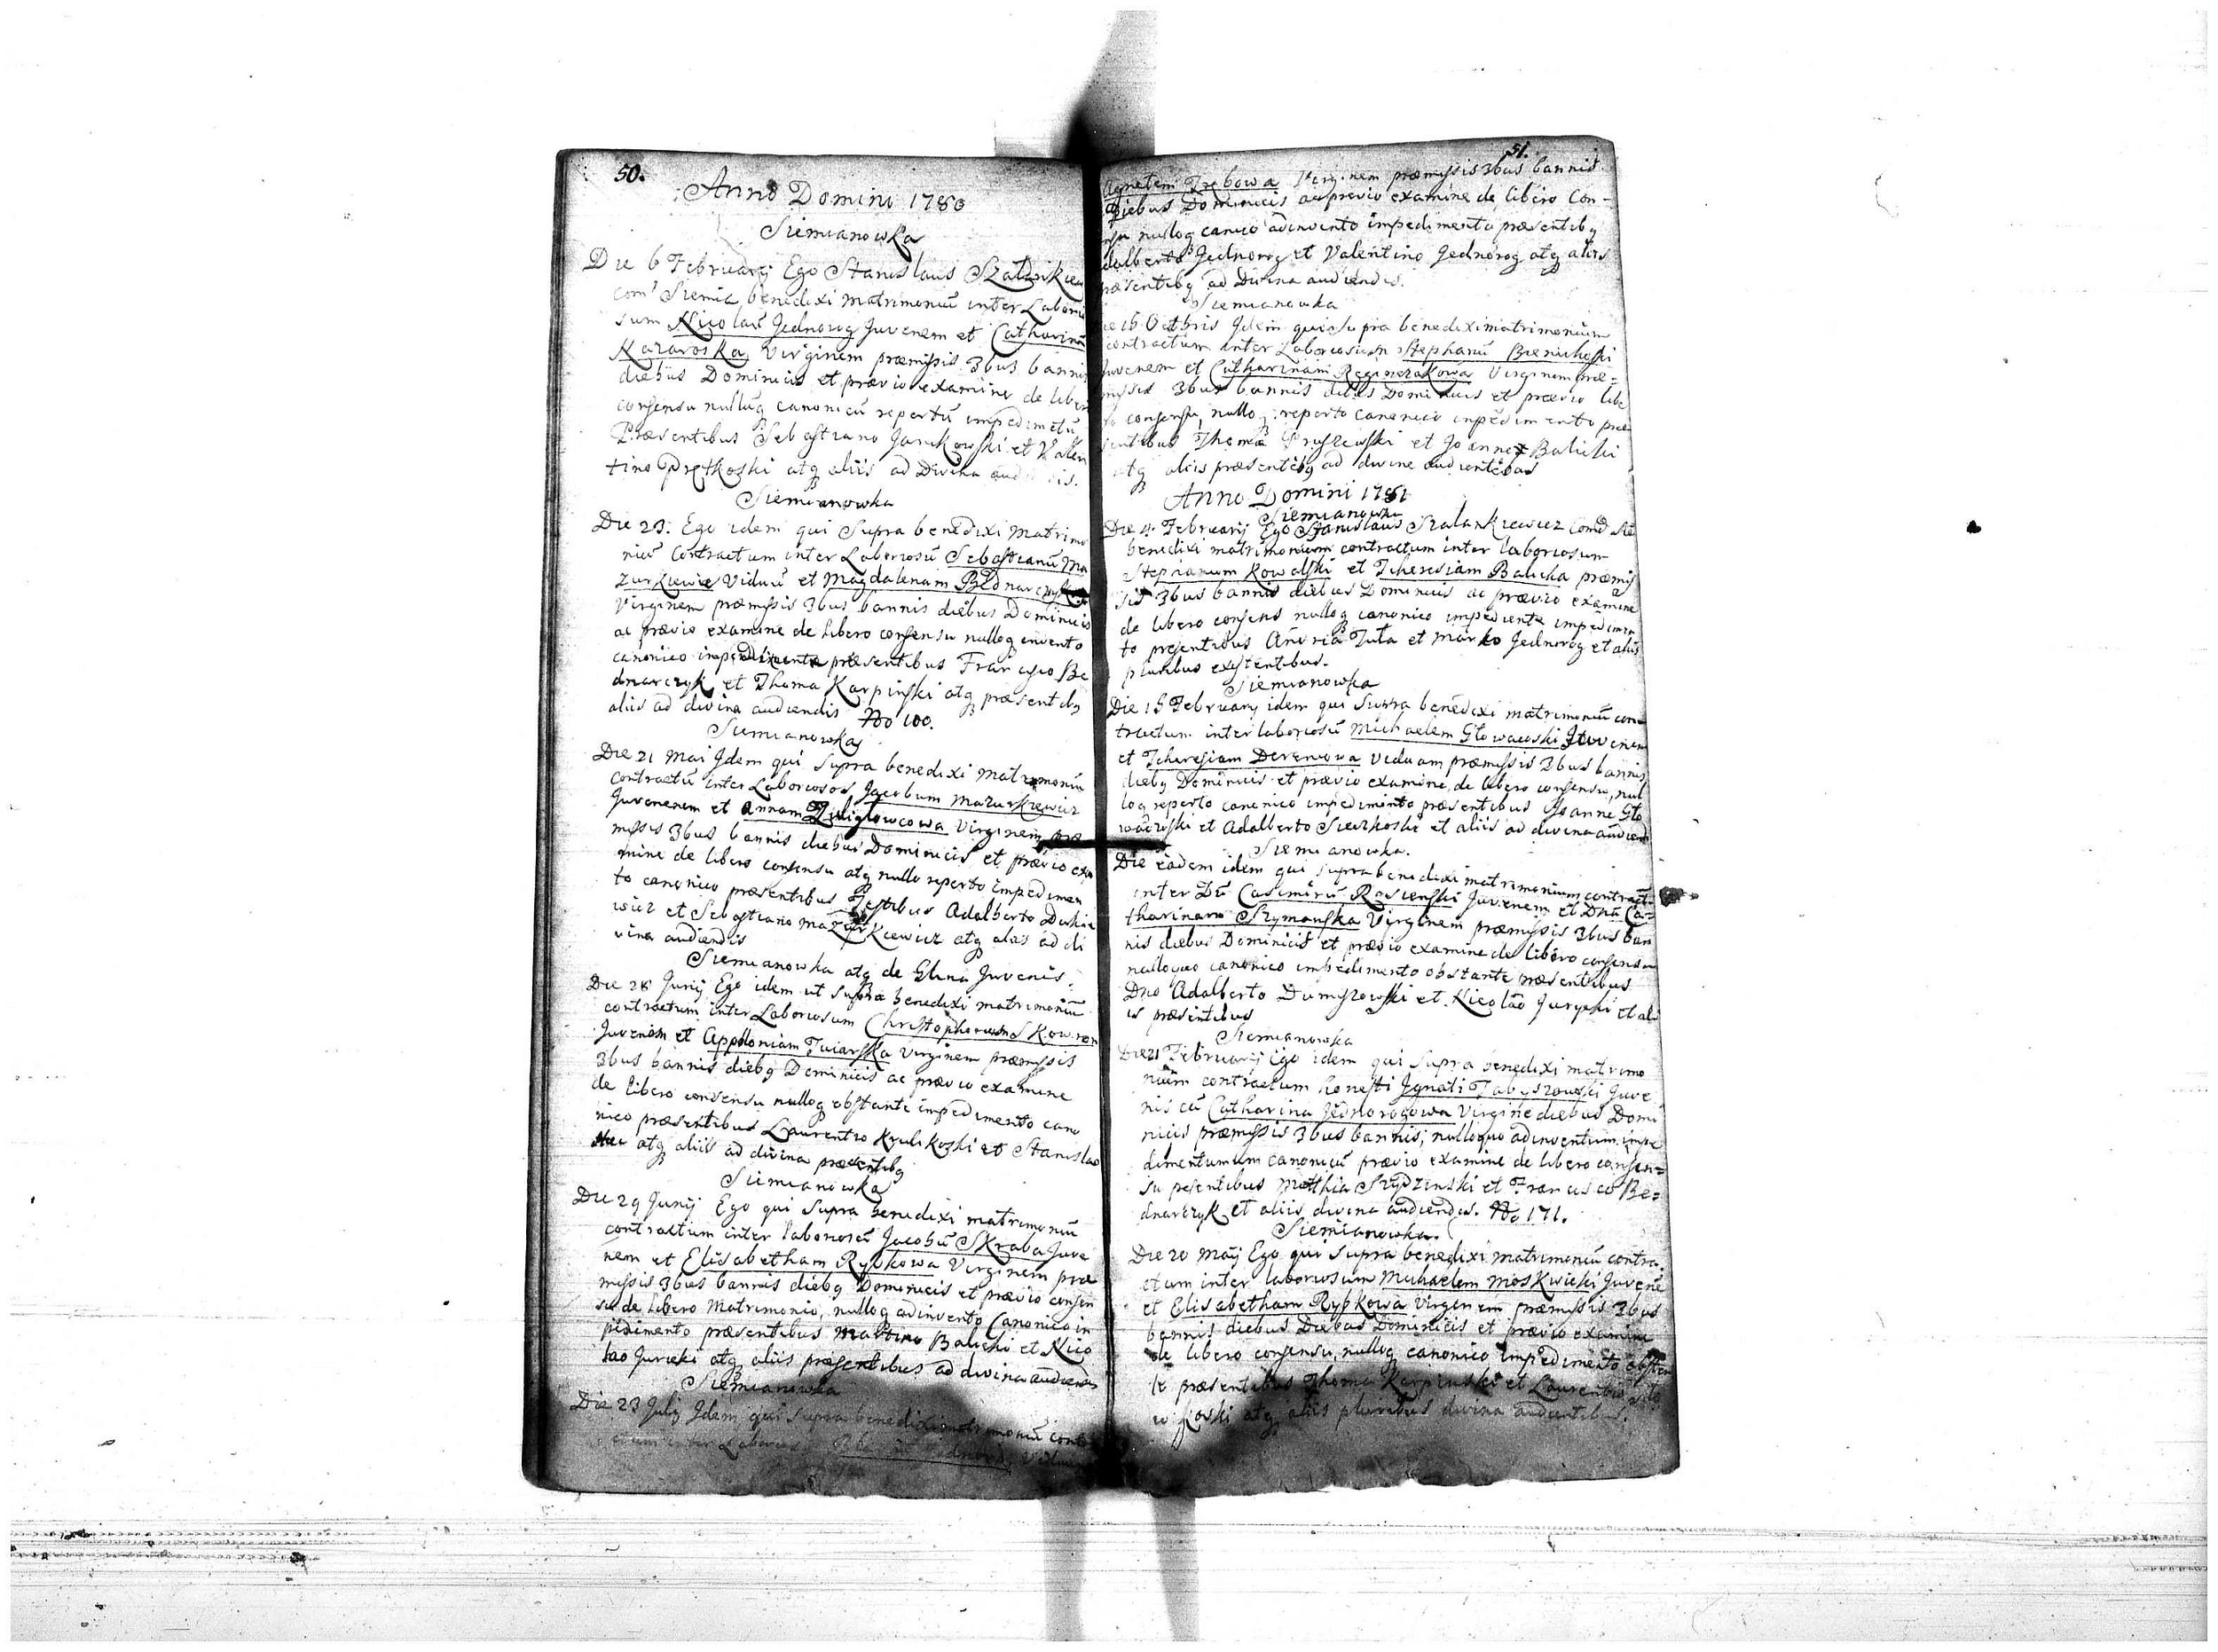 50.
Anno Domini 1780
Siemianowka
Die 6 Februarij Ego Stanislaus
com Siemia benedixi matrimoniū inter Laborio
sum Nicolaū Jednorog Juvenem et Catharinā
Virginem præmissis 3bus bannis
diebus Dominicis et prævio examine de libero
consensu nullūq canonicū repertū impedimētū
Præsentibus Sebastiano Jankowski et Valen
tino Prętkoski atq aliis ad Divina
Siemianowka
Die 23. Ego idem qui Supra benedixi Matrimo
niū Contractum inter Laboriosū Sebastianū Ma
zurkiewic Viduū et Magdalenam
Virginem præmissis 3bus bannis diebus Dominicis
ac prævio examine de libero consensu nulloq invento
canonico præsentibus Francisco Be
dnarczyk et Thoma Karpinski atq præsentibq
aliis ad divina audiendis No 100.
Siemianowka
Die 21 Mai Idem qui Supra benedixi Matrimoniū
contractū inter Laboriosos Jacobum Mazurkiewicz
Juvenenem et Annam Virginem præ
missis 3bus bannis diebus Dominicis et prævio exa
mine de libero consensu atq nullo reperto impedimen
to canonico præsentibus Testibus Adalberto
wicz et Sebastiano Mazurkiewicz atq aliis ad di
vina audiendis
Siemianowka atq de Glina Juvenis.
Die 28 Junij Ego idem ut Supra benedixi matrimoniū
contractum inter Laboriosum Christophorum Skowron
Juvenem et Appoloniam Virginem præmissis
3bus bannis diebq Dominicis ac prævio examine
de libero consensu nulloq obstante impedimento cano
nico præsentibus Laurentio Krulikoski et Stanislao
atq aliis ad divina præsentibq
Siemianowka
Die 29 Junij Ego qui Supra benedixi matrimoniū
contractum inter laboriosū Jacobū Skraba Juve
nem et Elisabetham Rybkowa Virginem præ
missis 3bus bannis diebq Dominicis et prævio consen
su de libero Matrimonio, nulloq adinvento Canonico im
pedimento præsentibus Martino Balicki et Nico
lao Jurecki atq aliis præsentibus ad divina audiendis
Siemianowka
Die 23 Julij Idem qui Supra benedixi matrimoniū
51.
Agnetem Zrębowa Virginem præmissis 3bus bannis
diebus Dominicis ac prævio examine de libero Con-
nulloq adinvento impedimento præsentibq
Jednorog et Valentino Jednorog atq aliis
ad Divina audiendis.
Siemianowka
16 Octbris Idem qui Supra benedixi matrimonium
contractum inter Laboriosum Stephanū
Juvenem et Catharinam Virginem præ=
missis 3bus bannis Dominicis et prævio libe
ro consensu, nulloq reperto canonico impedimento præ
sentibus Thoma et Joanne Balicki
atq aliis præsentibq ad divine audientibus
Anno Domini 1781
Siemianowka
Die 4 Februarij Ego Stanislaus Szalankiewicz Comd Sie
benedixi matrimonium contractum inter laboriosum
Stephanum Kowalski et Theresiam Balicka præmis
sis 3bus bannis diebus Dominicis ac prævio examine
de libero consens nulloq canonico impediente impedimen
to presentibus Andrea Juta et Marko Jednorog et aliis
pluribus existentibus.
Siemianowka
Die 18 February idem qui Supra benedixi matrimoniū con
tractum inter laboriosū Michaelem Głowacski Juvenem
et Theresiam Derenowa viduam præmissis 3bus bannis
diebq Dominicis et prævio examine, de libero consensu, nul
loq reperto canonico impedimento præsentibus Joanne Gło
waczski et Adalberto Sieczkoski et aliis ad divina audiend
Siemianowka.
Die eadem idem qui supra benedixi matrimonium contract
inter Dū Casimirū Rasienski Juvenem et Dnā Ca=
tharinam Szymanska Virginem præmissis 3bus ban
nis diebus Dominicis et prævio examine de libero consensu
nulloqeo canonico impedimento obstante præsentibus
Dno Adalberto Dumszowski et Nicolao Jurecki et ali
is præsentibus
Siemianowka
Die 21 Februarij Ego idem qui supra benedixi matrimo
niūm contractum honesti Ignati Tabyszowski Juve
nis cū Catharina Jednorogowa Virgine diebus Domi
nicis præmissis 3bus bannis; nulloquo adinventum impe
dimentumum canonicū prævio examine de libero consen=
su pesentibus Matthia Szydzinski et Francisco Be=
dnarczyk et aliis divina audiendis. No 171.
Siemianowka.
Die 20 Maij Ego qui Supra benedixi matrimoniū contra
ctum inter laboriosum Michaelem Moskwicki Juvenē
et Elisabetham Rybkowa Virginem præmissis 3bus
bannis diebus Diebus Dominicis et prævio examine
de libero consensu, nulloq canonico impedimento obstan
te præsentibus Thoma Karpinski et Laurentio
atq aliis pluribus divina audientibus.